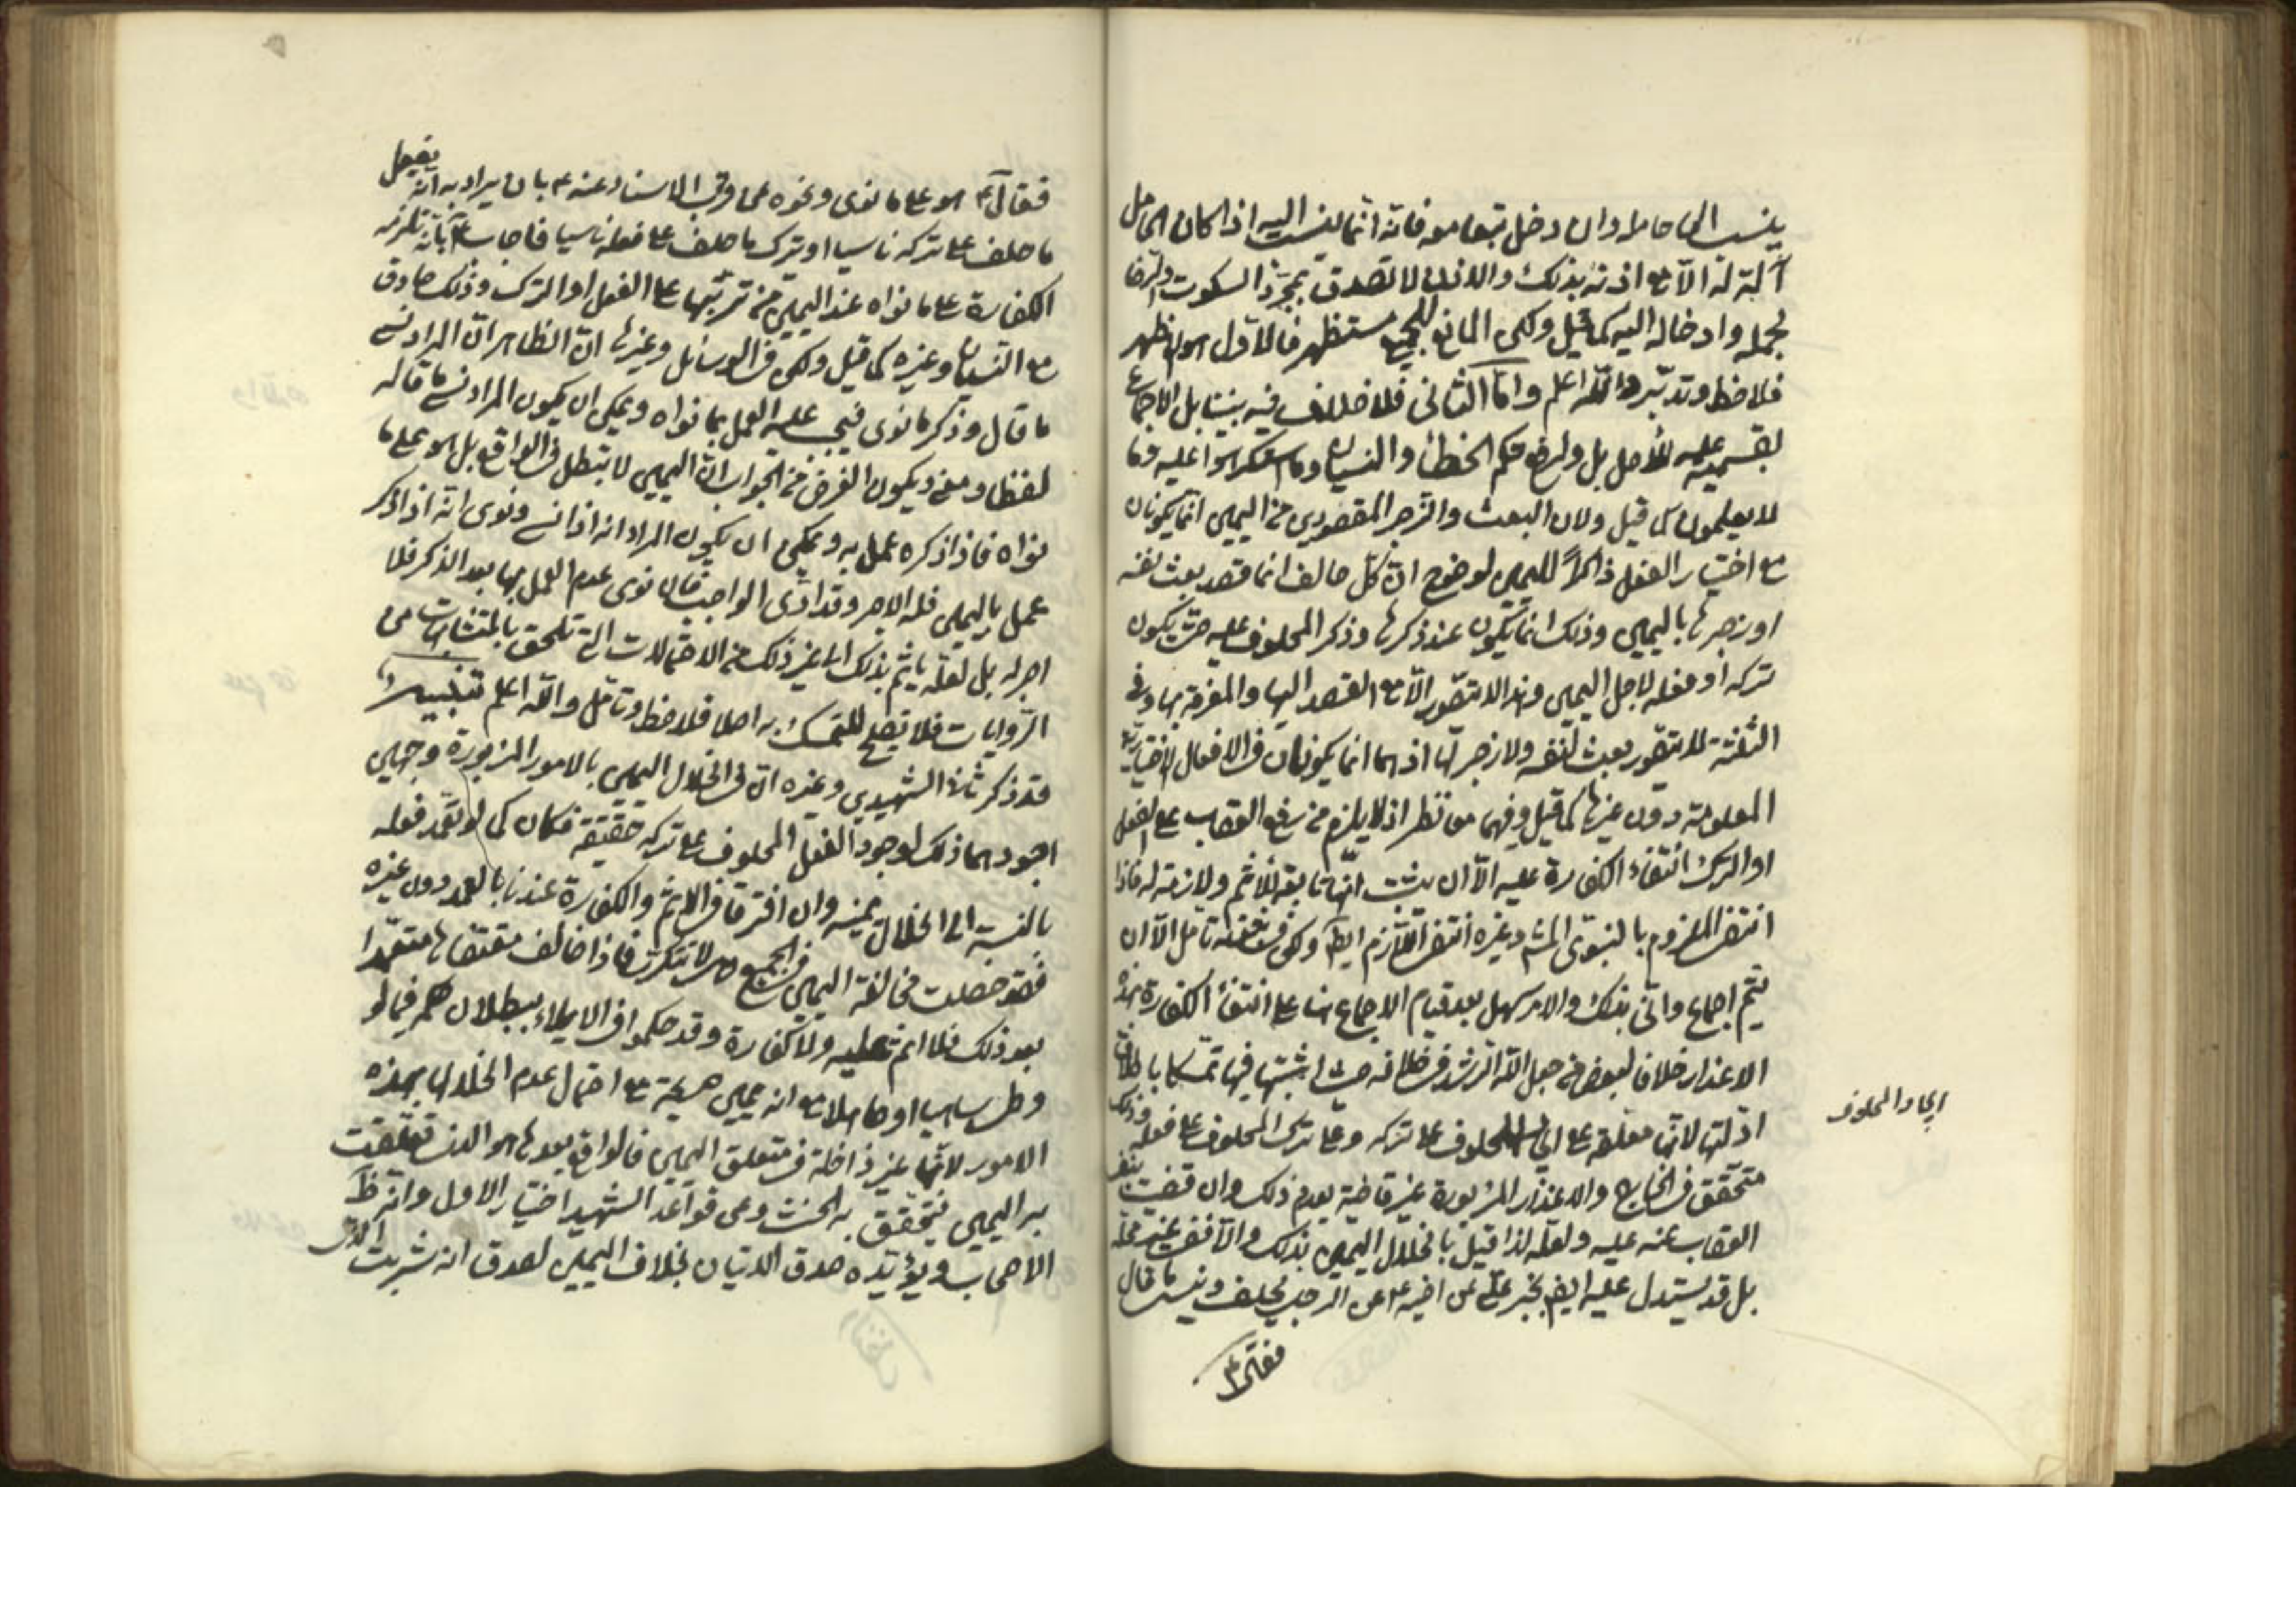 ينسب الى حامل وان دخل تبعا معه فانه انما ينسب اليه اذا كان الحامل
آلة له الا مع اذنه بذلك والاذن لا تصدق بمجرد السكوت والرضا
بحمله وادخاله اليه كما قيل ولكن المانع للجميع مستظهر فالاول هو الاظهر
فلاحظ وتدبر والله اعلم واما الثاني فلا خلاف فيه بيننا بل الاجماع
بقسميه عليه للاصل بل ولرفع حكم الخطأ والنسيان وما استكرهوا عليه وما
لا يعلمون كما قيل ولان البعث والزجر المقصودين من اليمين انما يكونان
مع اختيار الفعل ذاكرا لليمين لوضوح ان كل حالف انما قصد بعث نفسه
او زجرها باليمين وذلك انما يكون عند ذكرها وذكر المحلوف عليه حتى يكون
تركه او فعله لاجل اليمين وهذا لا يتصور الا مع القصد اليها والمعرفة بها وفي
الثلثة لا يتصور بعث لنفسه ولا زجر لها اذ هما انما يكونان في الافعال الاختيارية
المعلومة دون غيرها كما قيل وفيهما معا نظر اذ لا يلزم من رفع العقاب على الفعل
او الترك انتفاء الكفارة عليه الا ان يثبت انها تابعة للاثم ولازمة له فاذا
انتفى الملزوم بالنبوي وغيره انتفى اللازم ايضا وفي تأمل الا ان
يتم اجماع واني بذلك والامر سهل بعد قيام الاجماع هنا على انتفاء الكفارة بهذه
الاعذار خلافا لبعض من جعل الله الرشد في خلافه حيث اثبتها فيها تمسكا باطلاق
ادلتها لانها معلقة على المحلوف على تركه وعلى ترك المحلوف على فعله وذلك
ايجاد المحلوف
متحقق في الخارج والاعذار المزبورة غير قاضية بعدم ذلك وان قضت بنفي
العقاب عنه عليه ولعله لذا قيل بانحلال اليمين بذلك والا ففي غير محله
بل قد يستدل عليه ايضا بخبر علي عن اخيه ع عن الرجل يحلف وينسى ما قال
فقال ع
فقال ع هو على ما نوى ونحوه عما قرب الاسناد عنه ع بان يراد به انه يفعل
ما حلف على تركه ناسيا او ترك ما حلف على فعله ناسيا فاجاب ع بانه تلزمه
الكفارة على ما نواه عند اليمين من ترتبها على الفعل او الترك وذلك صادق
مع النسيان وغيره كما قيل ولكن في الوسائل وغيرها ان الظاهر ان المراد نسي
ما قال وذكر ما نوى فيجب عليه العمل بما نواه ويمكن ان يكون المراد نسي ما قاله
لفظا ومعنى ويكون الغرض من الجواب ان اليمين لا يبطل في الواقع بل هو على ما
نواه فاذا ذكره عمل به ويمكن ان يكون المراد انه اذا نسي ونوى انه اذا ذكر
عمل باليمين فله الاجر وقد ادى الواجب فان نوى عدم العمل بها بعد الذكر فلا
اجر له بل لعله ياثم بذلك الى غير ذلك من الاحتمالات التي تلحق بالمتشابهات من
الروايات فلا تصلح للتمسك به اصلا فلاحظ وتامل والله اعلم تنبيه
قد ذكر ثاني الشهيدين وغيره ان في انحلال اليمين بالامور المزبورة وجهين
اجودهما ذلك لوجود الفعل المحلوف على تركه حقيقة فكان كما لو تعمد فعله
بالنسبة الى انحلال يمينه وان افترقا في الاثم والكفارة عندنا بالعمد دون غيره
فقد حصلت مخالفة اليمين في الجميع وهي لا تتكرر فاذا خالف مقتضاها متعمدا
بعد ذلك فلا اثم عليه ولا كفارة وقد حكموا في الايلاء ببطلان حكمه فيما لو
وطى ساهيا او جاهلا مع انه يمين صريحة مع احتمال عدم انحلالها بهذه
الامور لانها غير داخلة في متعلق اليمين فالواقع بعدها هو الذي تعلقت
به اليمين فيتحقق به الحنث وعن قواعد الشهيد اختيار الاول وانه ظاهر
الاصحاب ويؤيده صدق الاتيان بخلاف اليمين لصدق انه شرب